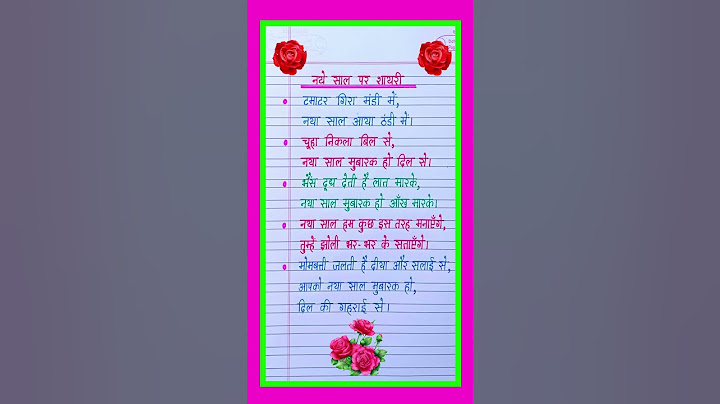 नये साल पर शायरी
टमाटर गिरा मंडी में,
नया साल आया ठंडी में।
चूहा निकला बिल से,
नया साल मुबारक हो दिल से।
भैंस दूध देती है लात मारके,
नया साल मुबारक हो आँख मारके।
नया साल हम कुछ इस तरह मनाएँगे,
तुम्हें झोली भर-भर के सताएँगे।
मोमबत्ती जलती है दीया और सलाई से,
आपको नया साल मुबारक हो,
दिल की गहराई से।